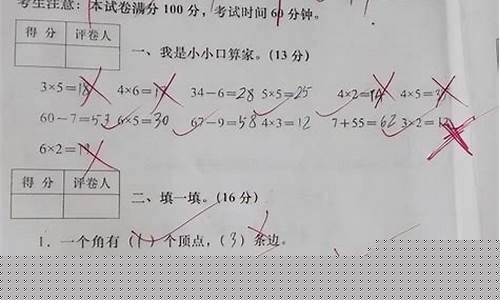 考生注意：本试卷满分 100 分，考试时间 60 分钟。
得 分 评卷人
一、我是小小口算家。（13 分）
3×5= 4×6= 34－6=28 5×5=25 4×2= 4×5=
60－7=53 6×5=30 67－9=58 4×3=12 7＋55=62 3×2=
6×2=
得 分 评卷人
二、填一填。（16 分）
1．一个角有（1）个顶点，（3）条边。